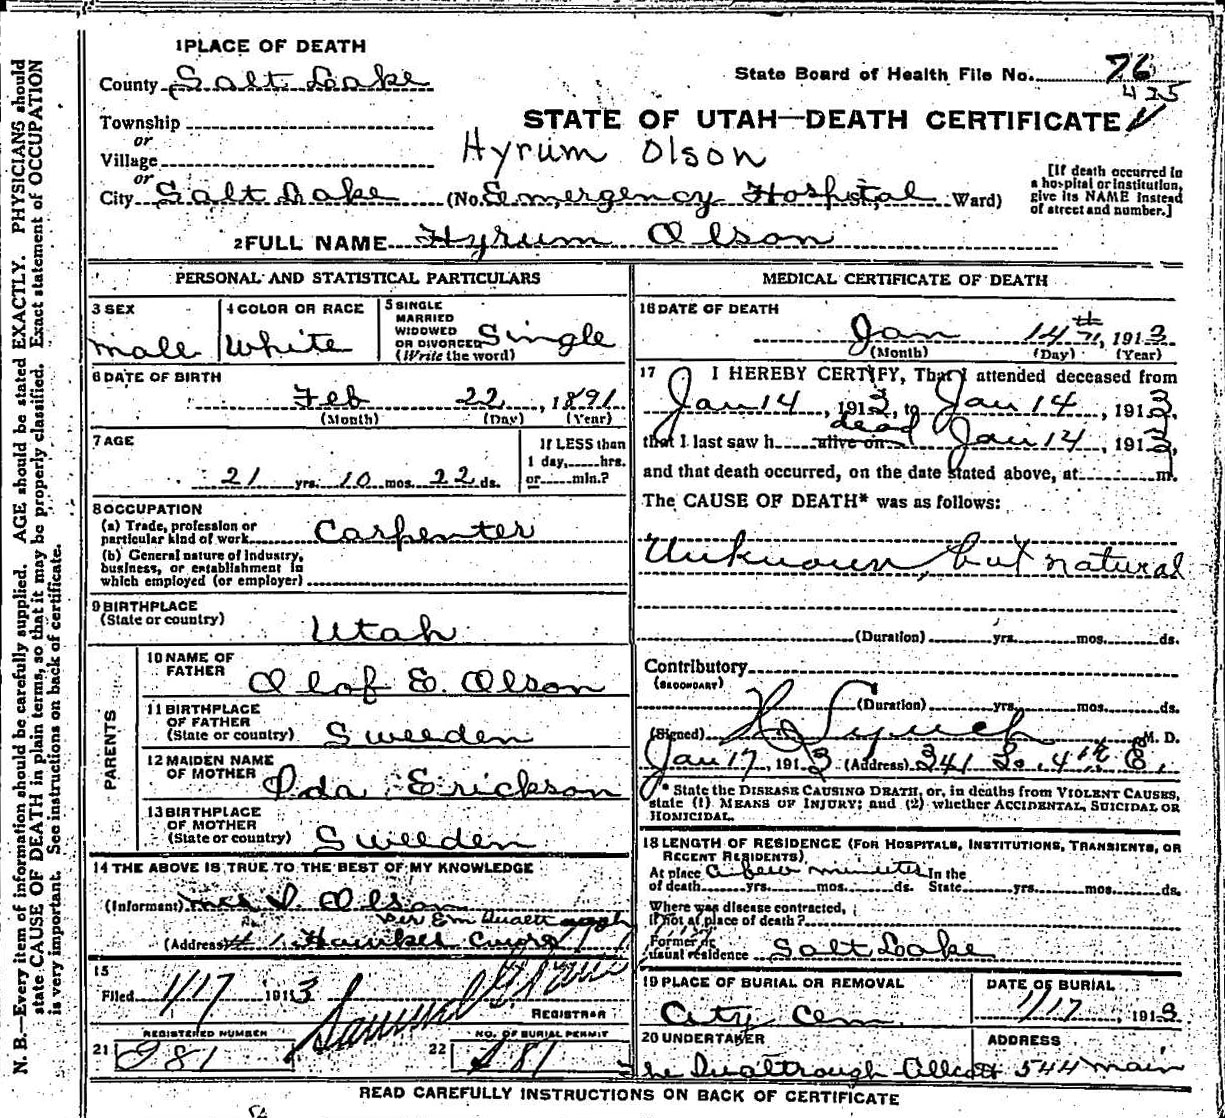 1 PLACE OF DEATH
County Salt Lake
State Board of Health File No. 76
435
Township
or
Village
or
STATE OF UTAH—DEATH CERTIFICATE
Hyrum Olson
City Salt Lake (No. Emergency Hospital St., Ward)
[If death occurred in a hospital or institution, give its NAME instead of street and number.]
2 FULL NAME Hyrum Olson
PERSONAL AND STATISTICAL PARTICULARS
3 SEX
male
4 COLOR OR RACE
White
5 SINGLE
MARRIED
WIDOWED
OR DIVORCED
(Write the word)
Single
6 DATE OF BIRTH
Feb 22, 1891
(Month) (Day) (Year)
7 AGE
21 yrs. 10 mos. 22 ds.
If LESS than
1 day, hrs.
or min.?
8 OCCUPATION
(a) Trade, profession or
particular kind of work Carpenter
(b) General nature of industry,
business, or establishment in
which employed (or employer)
9 BIRTHPLACE
(State or country)
Utah
PARENTS
10 NAME OF
FATHER
Olof E. Olson
11 BIRTHPLACE
OF FATHER
(State or country)
Sweeden
12 MAIDEN NAME
OF MOTHER
Ida Erickson
13 BIRTHPLACE
OF MOTHER
(State or country)
Sweeden
14 THE ABOVE IS TRUE TO THE BEST OF MY KNOWLEDGE
(Informant) Mrs I. Olson
(Address)
15
Filed 1/17 1913
REGISTRAR
REGISTERED NUMBER
21
NO. OF BURIAL PERMIT
22
MEDICAL CERTIFICATE OF DEATH
16 DATE OF DEATH
Jan 14th, 1913
(Month) (Day) (Year)
17 I HEREBY CERTIFY, That I attended deceased from
Jan 14, 1913, to Jan 14, 1913,
that I last saw h alive on dead Jan 14, 1913,
and that death occurred, on the date stated above, at m.
The CAUSE OF DEATH* was as follows:
Unknown, but natural
(Duration) yrs. mos. ds.
Contributory
(SECONDARY)
(Duration) yrs. mos. ds.
(Signed) M. D.
Jan 17, 1913 (Address) 341 So. 4th E.
* State the DISEASE CAUSING DEATH, or, in deaths from VIOLENT CAUSES,
state (1) MEANS OF INJURY; and (2) whether ACCIDENTAL, SUICIDAL OR
HOMICIDAL.
18 LENGTH OF RESIDENCE (FOR HOSPITALS, INSTITUTIONS, TRANSIENTS, OR
RECENT RESIDENTS)
At place a few minutes In the
of death yrs. mos. ds. State yrs. mos. ds.
Where was disease contracted,
if not at place of death?
Former or
usual residence Salt Lake
19 PLACE OF BURIAL OR REMOVAL
City Cem.
DATE OF BURIAL
1/17, 1913
20 UNDERTAKER
ADDRESS
544 Main
READ CAREFULLY INSTRUCTIONS ON BACK OF CERTIFICATE
N. B.—Every item of information should be carefully supplied. AGE should be stated EXACTLY. PHYSICIANS should
state CAUSE OF DEATH in plain terms, so that it may be properly classified. Exact statement of OCCUPATION
is very important. See instructions on back of certificate.